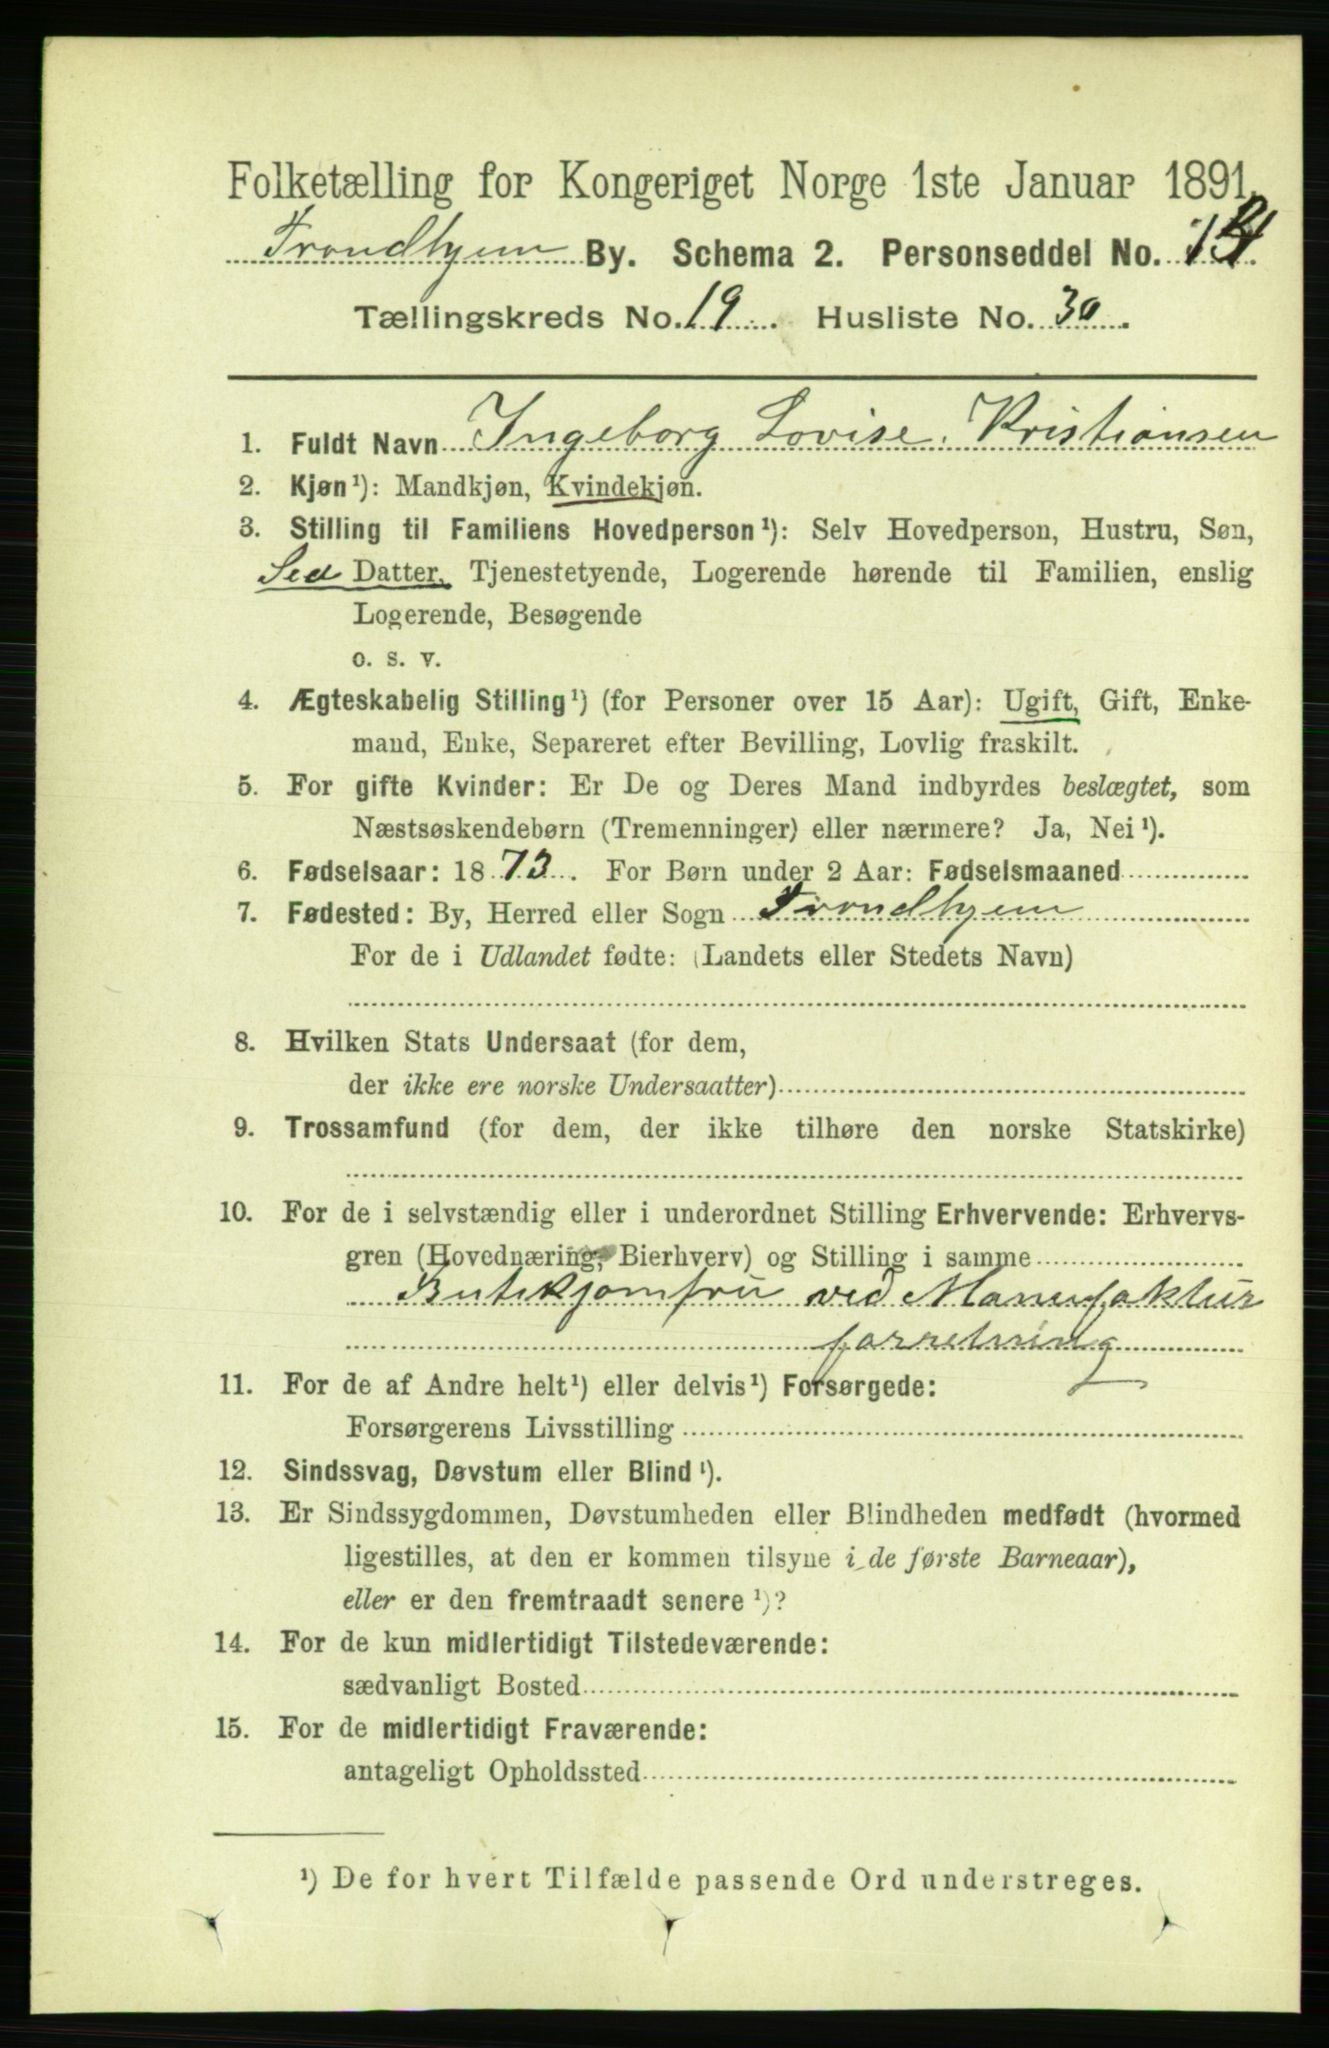 Folketælling for Kongeriget Norge 1ste Januar 1891.
Trondhjem By. Schema 2. Personseddel No.
Tællingskreds No. 19. Husliste No. 30.
1. Fuldt Navn Ingeborg Lovise Kristiansen
2. Kjøn¹): Mandkjøn, Kvindekjøn.
3. Stilling til Familiens Hovedperson¹): Selv Hovedperson, Hustru, Søn,
Sed Datter, Tjenestetyende, Logerende hørende til Familien, enslig
Logerende, Besøgende
o. s. v.
4. Ægteskabelig Stilling¹) (for Personer over 15 Aar): Ugift, Gift, Enke-
mand, Enke, Separeret efter Bevilling, Lovlig fraskilt.
5. For gifte Kvinder: Er De og Deres Mand indbyrdes beslægtet, som
Næstsøskendebørn (Tremenninger) eller nærmere? Ja, Nei¹).
6. Fødselsaar: 1873. For Børn under 2 Aar: Fødselsmaaned
7. Fødested: By, Herred eller Sogn Trondhjem
For de i Udlandet fødte: (Landets eller Stedets Navn)
8. Hvilken Stats Undersaat (for dem,
der ikke ere norske Undersaatter)
9. Trossamfund (for dem, der ikke tilhøre den norske Statskirke)
10. For de i selvstændig eller i underordnet Stilling Erhvervende: Erhvervs-
gren (Hovednæring, Bierhverv) og Stilling i samme
Butikjomfru ved Manufaktur
forretning
11. For de af Andre helt¹) eller delvis¹) Forsørgede:
Forsørgerens Livsstilling
12. Sindssvag, Døvstum eller Blind¹).
13. Er Sindssygdommen, Døvstumheden eller Blindheden medfødt (hvormed
ligestilles, at den er kommen tilsyne i de første Barneaar),
eller er den fremtraadt senere¹)?
14. For de kun midlertidigt Tilstedeværende:
sædvanligt Bosted
15. For de midlertidigt Fraværende:
antageligt Opholdssted
¹) De for hvert Tilfælde passende Ord understreges.